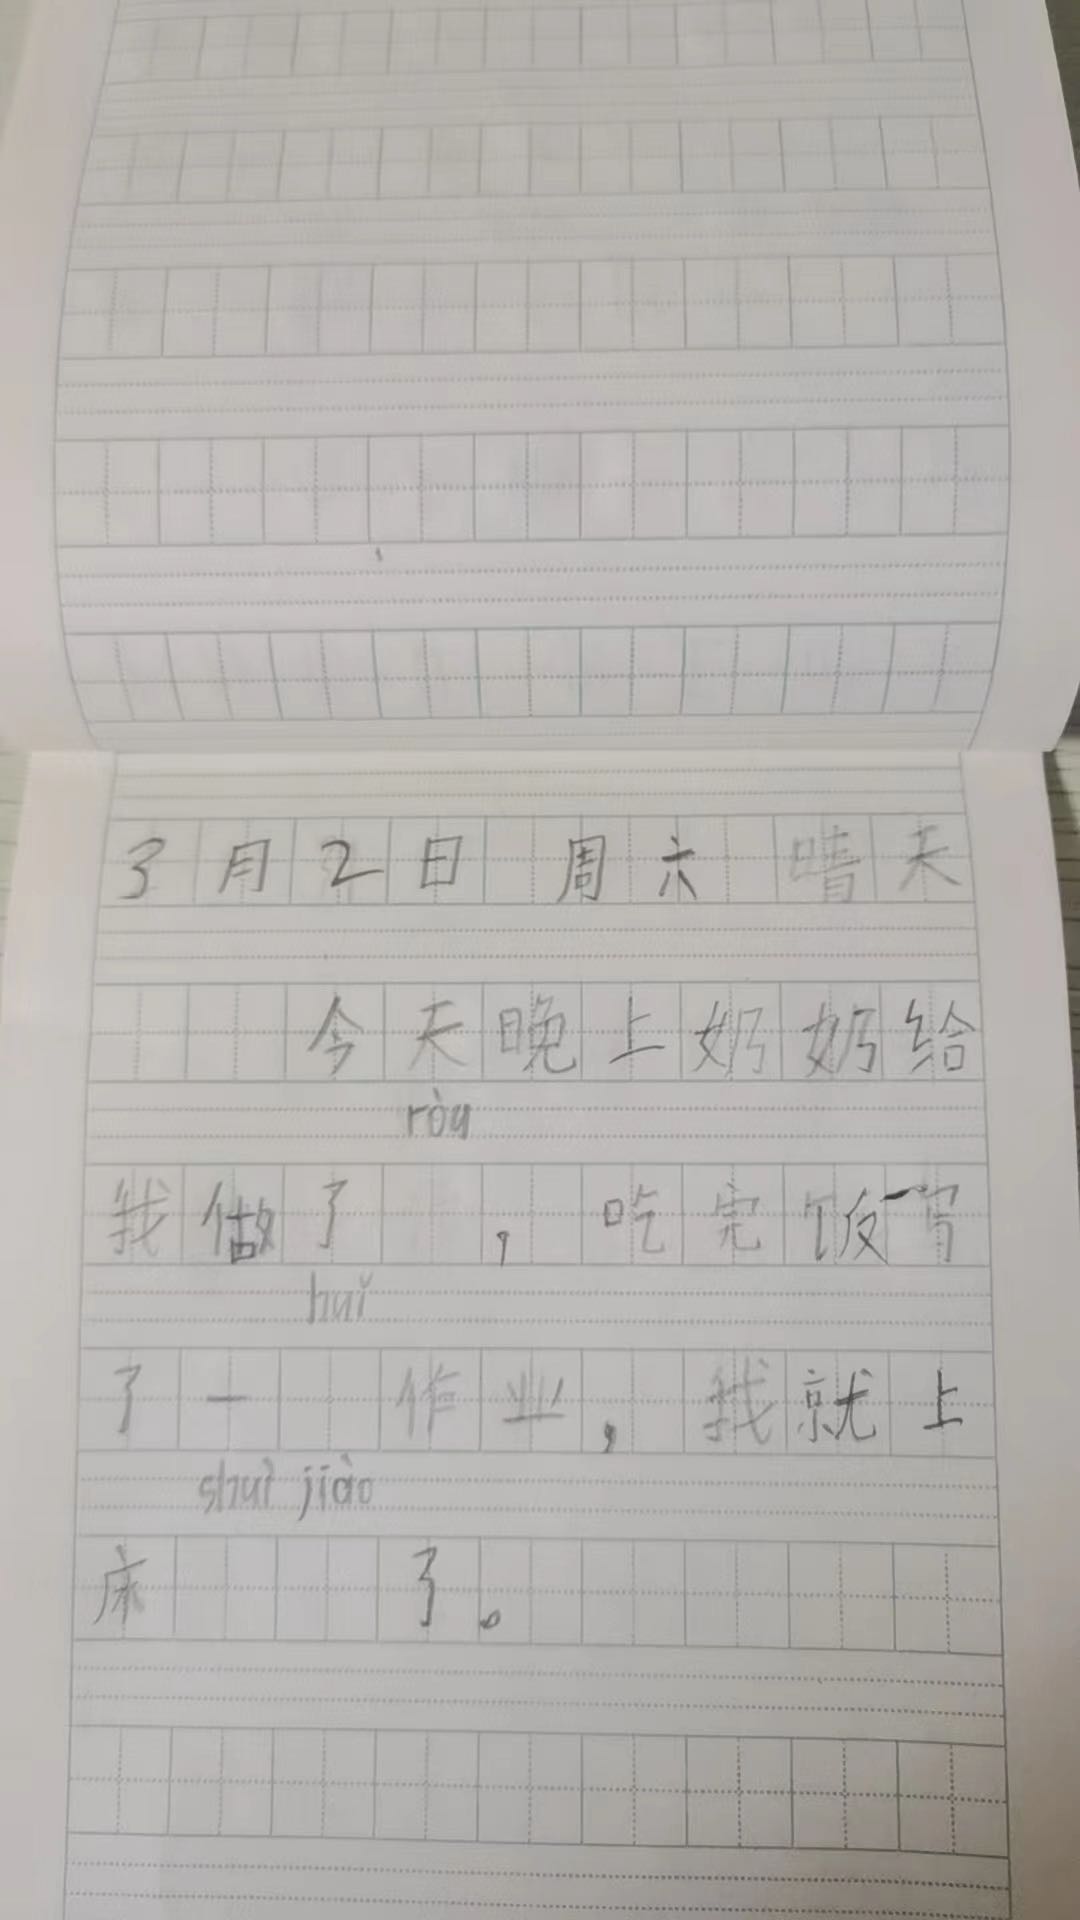 3月2日 周六 晴天
今天晚上奶奶给
ròu
我做了 ，吃完饭写
huǐ
了一 作业，我就上
shuì jiào
床 了。